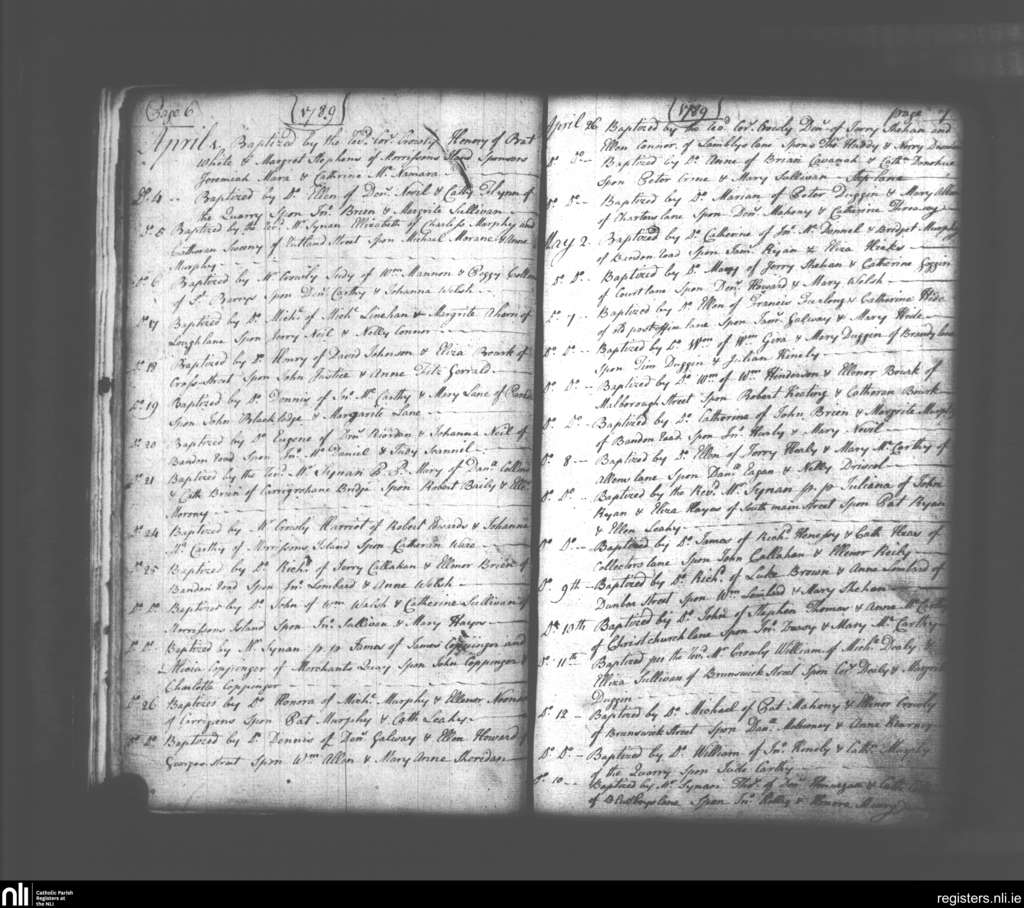 Page 6
1789
April 1 Baptized by the Revd. Cors. Crowly Henory of Patt
White & Margret Stephens of Morrissons Iland Sponsors
Jeremiah Mara & Cathrine Mc Namara
Do. 4 Baptized by Do. Ellen of Flynn of
the Quarry Spon Jno. Breen & Margrite Sullivan
Do. 5 Baptized by the Revd. Mr. Synan Elizabeth of Charless Murphy and
of Rutland Street Spon Michael Morane & Anne
Murphy
Do 6 Baptized by Mr. Crowly Judy of Wm. Mannon & Peggy
of St. Barrys Spon Denis Carthy & Johanna Welsh
Do 17 Baptized by Do. Michl. of Michl. Linehan & Margrite Ahern of
Loughlane Spon Jerry Neil & Nelly Connor
Do 18 Baptized by Do Henry of David Johnson & Eliza Bourk of
Cross Street Spon John Justice & Anne Fitz Gerrald
Do. 19 Baptized by Do. Dennis of Jno. Mc. Carthy & Mary Lane of
Spon John Blackledge & Margarite Lane
Do. 20 Baptized by Do Eugene of Riordan & Johanna Neil of
Bandon road Spon Jno. Mc Daniel & Judy Scannel
Do 21 Baptized by the Revd. Mr Synan P. P. Mary of Danl.
& Cath Brien of Carrigrohane Bridge Spon Robert Baily & Ellr.
Morony
Do 24 Baptized by Mr. Crowly Harriot of Robert Edwards & Johanna
Mc. Carthy of Morrissons Island Spon Catherin
Do 25 Baptized by Do. Richd. of Jerry Callahan & Ellenor Brien of
Bandon road Spon Jno. Lombard & Anne Welsh
Do Do Baptized by Do. John of Wm Walsh & Catherine Sullivan of
Morrissons Island Spon Jno. Sullivan & Mary Hayes
Do Do Baptized by Mr. Synan p. p James of James Coppinger and
Coppinger of Merchants Quay Spon John Coppinger &
Charlotte Coppinger
Do 26 Baptizes by Do Honora of Michl. Murphy & Ellenor
of Spon Pat Murphy & Cath Leahy
Do Do Baptized by Do. Dennis of Denis Galway & Ellen Howard of
Georges Street Spon Wm Allen & Mary Anne Sheredan
1789
page 7
April 26 Baptized by the Revd. Cors. Crowly Denis of Jerry Shehan and
Ellen Connor of Lamblys lane Spons Thos Haddy & Norry
Do Do Baptized by Do Anne of Brian Cavanah & Cathn. Donohue
Spon Peter & Mary Sullivan
Do Do Baptized by Do. Marian of Peter Duggin & Mary
of Charlows lane Spon Denis Mahony & Catherine
May 2 Baptized by Do Catherine of Jno. Mc. Donnel & Bridget Murphy
of Bandon road Spon Jams. Ryan & Eliza
Do Do Baptized by Do Mary of Jerry Shehan & Catherine Goggin
of Courtlane Spon Denis. Howard & Mary Welsh
Do 7 Baptized by Do Ellen of Francis Furlong & Catherine Hide
of postoffice lane Spon Jams. Galway & Mary Hide
Do Do Baptized by Do Wm of Wm & Mary Duggin of Brandy lane
Spon Tim Duggin & Julian Kinely
Do Do Baptized by Do Wm of Wm Hinderson & Ellenor Bourk of
Malborough Street Spon Robert Keating & Catheran Bourk
Do Do Baptized by Do. Catherine of John Breen & Margrite Murphy
of Bandon road Spon Jno. Healy & Mary
Do. 8 Baptized by Do. Ellen of Jerry Healy & Mary Mc. Carthy of
lane Spon Danl. Eagan & Nelly Driscol
Do Do Baptized by the Revd. Mr. Synan p. p Juliana of John
Ryan & Eliza Hayes of South main Street Spon Pat Ryan
& Ellen Leahy
Do Do Baptized by Do James of Richd. Henessy & Cath of
Collectors lane Spon John Callahan & Ellenor Reily
Do. 9th Baptized by Do. Richd. of Luke Brown & Anne Lombard of
Dunbar Street Spon Wm Lombard & Mary Shehan
Do 10th Baptized by Do. John of Stephen Thomas & Anne Mc Carthy
of Christ church lane Spon Jno. & Mary Mc. Carthy
Do. 11th Baptized per the Revd. Mr Crowly William of Michl. Dealy &
Eliza Sullivan of Brunswick Street Spon Cors. Dealy &
Duggin
Do. 12 Baptized by Do. Michael of Pat Mahony & Ellenor Crowly
of Brunswick Street Spon Danl. Mahoney & Anne Kearney
Do Do. Baptized by Do. William of Jno. Kinely & Cathn. Murphy
of the Quarry Spon Jude Carthy
Do. 10 Baptized by Mr. Synan Thos. of & Cathn.
of lane Spon Jno. Kelly & Honora
nli
Catholic Parish
Registers at
the NLI
registers.nli.ie